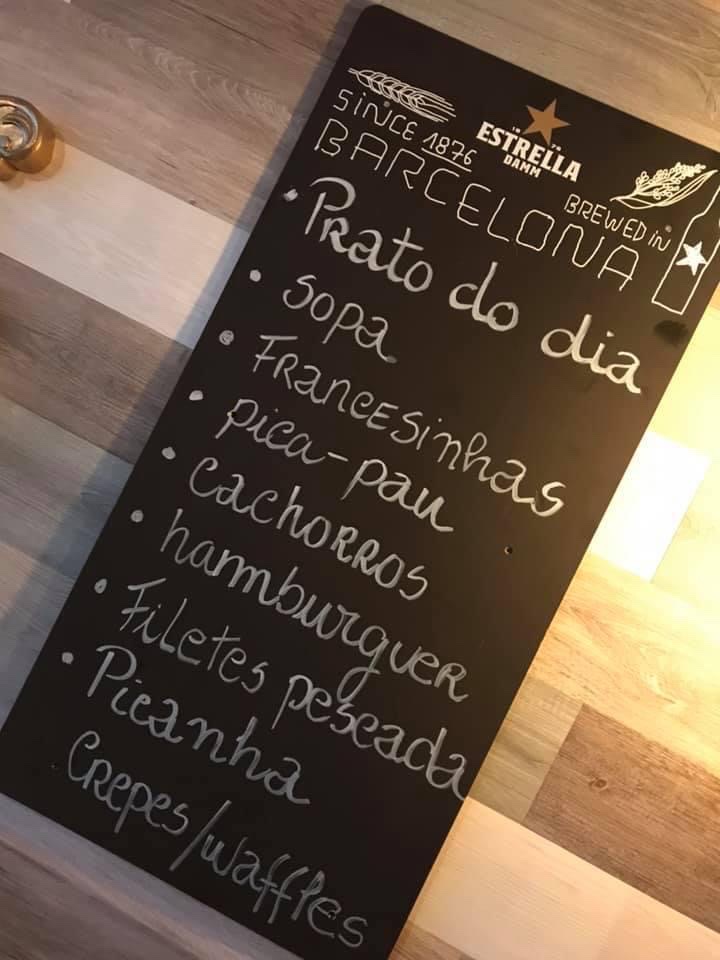 SINCE 1876
18 76
ESTRELLA
DAMM
BREWED IN
BARCELONA
• Prato do dia
• Sopa
• FRANCESinhas
• pica-pau
• cachoRROS
• hamburguer
• FiLeTes pescada
• Picanha
CRepes/waffles